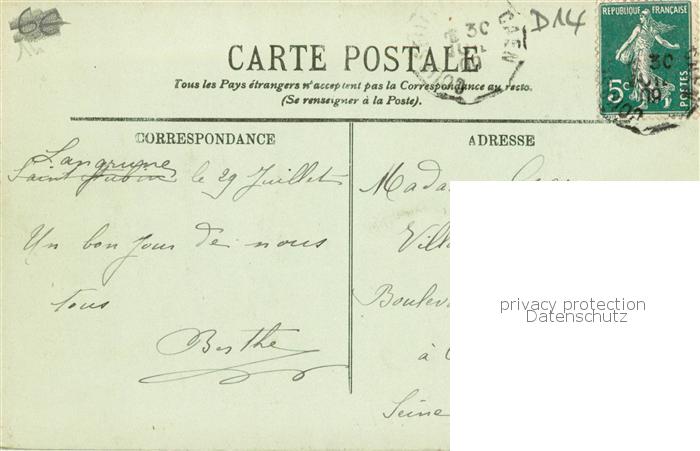 6€
D14
COURS
CAEN
30
CARTE POSTALE
Tous les Pays étrangers n'acceptent pas la Correspondance au recto.
(Se renseigner à la Poste).
REPUBLIQUE FRANÇAISE
5c
POSTES
30
CORRESPONDANCE
ADRESSE
Langrune
Saint Aubin le 29 Juillet
Un bon jour de nous
tous
Berthe
Mada
Villa
Bouleva
à
Seine
privacy protection
Datenschutz